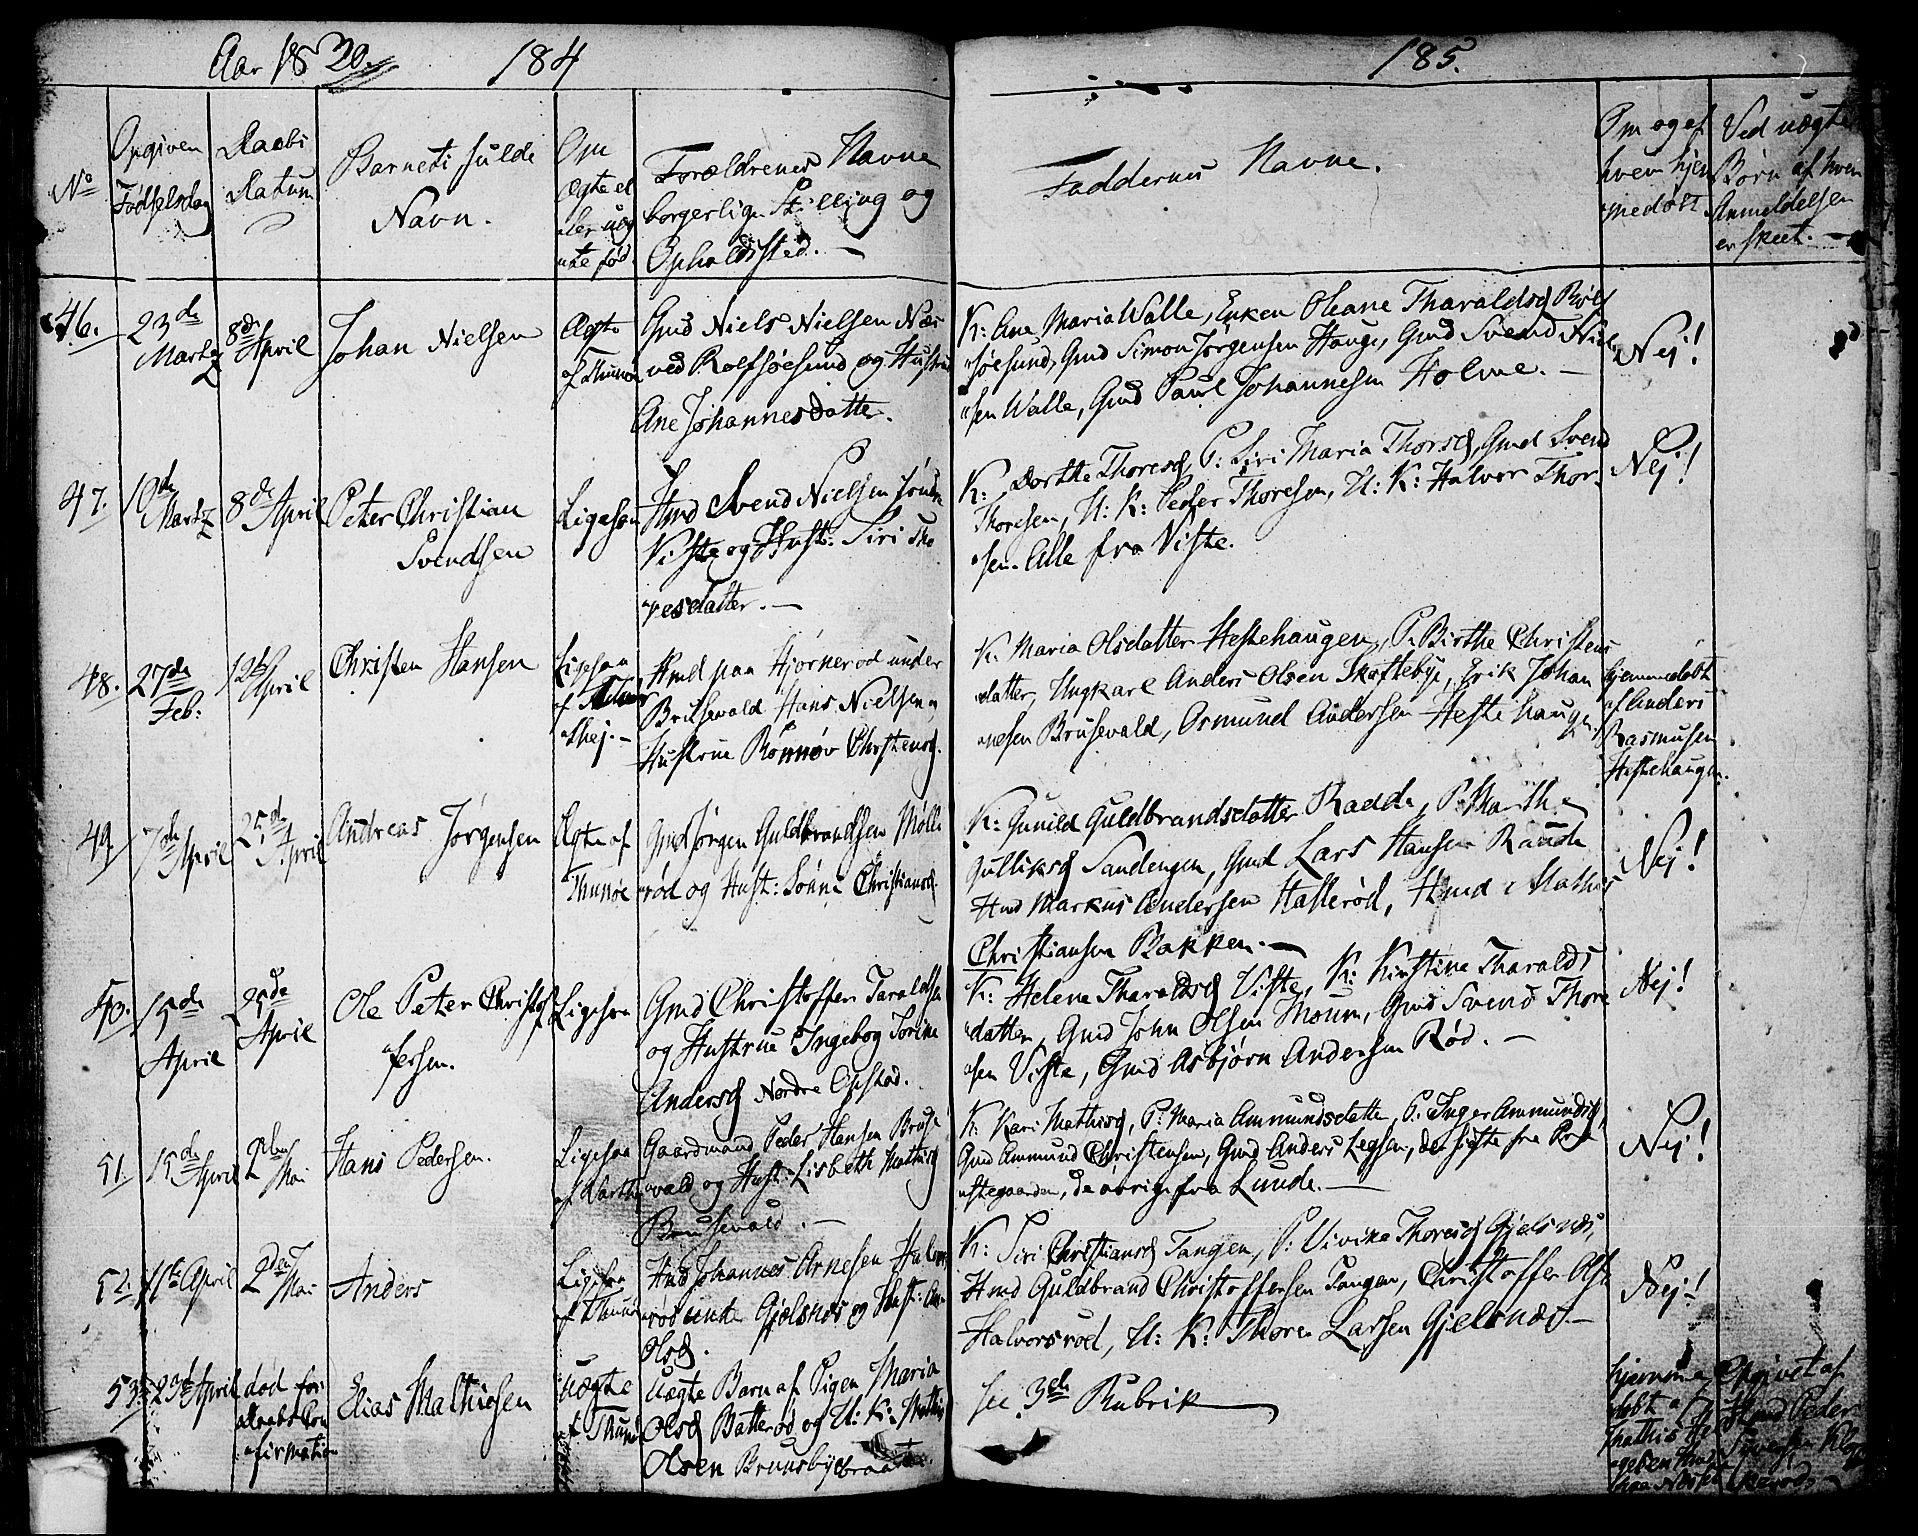 Aar 1820. 184
185.
No
Opgiven Fødselsdag
Daabs Datum
Barnets fulde Navn.
Om Ægte el ler uæg te fød.
Forældrenes Navne borgerlige Stilling og Opholdssted. —
Faddernes Navne.
Om og af hvem hjem medøbt
Ved uægte Børn af hvem Anmeldelsen er skeet. —
46. 23de Martz 8de April Johan Nielsen Ægte af Thunøe
Gmd Niels Nielsen Næs
ved Rolfsøesund og Hustrue
Ane Johannesdatter.
K: Ane Maria Walle, Enken Oleane Tharaldsd Rolf
søesund, Gmd Simon Jørgensen Hauge, Gmd Svend Niel
sen Walle, Gmd Paul Johannesen Holme. —
Nej!
47. 10de Martz 8de April Peter Christian Svendsen Ligesaa
Hmd Svend Nielsen
Viste og Hust: Siri Tho
resdatter. —
K: Dorthe Thoresd, P: Siri Maria Thorsd, Gmd Svend
Thoresen, U: K: Peder Thoresen, U: K: Halvor Thor
sen. Alle fra Viste.
Nej!
48. 27de Feb: 12te April Christen Hansen Ligesaa
Hmd paa Hjørnerød under
Brusevald Hans Nielsen
Hustrue Rønnøv Christensd.
K. Maria Olsdatter Hestehaugen, P. Birthe Christens
datter, Ungkarl Anders Olsen Skoftebye, Erik Johan
nesen Brusevald, Asmund Andersen Hestehaugen
hjemmedøbt af Anders Rasmusen Hestehaugen.
49 7de April 25de April Andreas Jørgensen Ægte af Thunøe
Gmd Jørgen Guldbrandsen Mølle
rød og Hust: Sønne Christiansd.
K: Gunild Guldbrandsdatter Radde, P. Marthe
Gulliksd Sandengen, Gmd Lars Hansen Raude
Hmd Markus Andersen Hallerød, Hmd Mathis
Christiansen Bakken. —
Nej!
50. 15de April 25de April Ole Peter Christof fersen. Ligesaa
Gmd Christoffer Taraldsen
og Hustrue Ingebog Torine
Andersd Nordre Opstad.
K: Helene Tharaldsd Viste, K: Kirstine Tharalds
datter, Gmd John Olsen Moum, Gmd Svend Thore
sen Viste, Gmd Asbjørn Andersen Rød. —
Nej!
51. 15de April 2den Mai Hans Pedersen. Ligesaa
Gaardmand Peder Hansen Bruse
vald og Hust: Lisbeth Mathisd
Brusevald. —
K: Kari Mathisd, P: Maria Ammundsdatter, P. Inger Ammundsd,
Gmd Ammund Christensen, Gmd Anders
stegaarden, de øvrige fra Lunde. —
Nej!
52. 11te April 2den Mai Anders Ligesaa af Thunøe
Hmd Johannes Arnesen Halvors
rød under Gjølsnæs og Hust:
Olsd.
K: Siri Christiansd Tangen, P: Vivike Thoresd Gjelsnæs,
Hmd Guldbrand Christoffersen Tangen, Christoffer Ols
Halvorsrød, U: K: Thoren Larsen Gjelsnæs. —
Nej!
53. 23de April død før Daabs Con firmation Elias Mathiesen uægte af Thunøe
Uægte Barn af Pigen Maria
Olsd Batterød og U: K: Mathis
Olsen Bruusbyebraaten.
see 3de Rubrik
hjemme døbt af Mathis
Opgivet af Hmd Peder